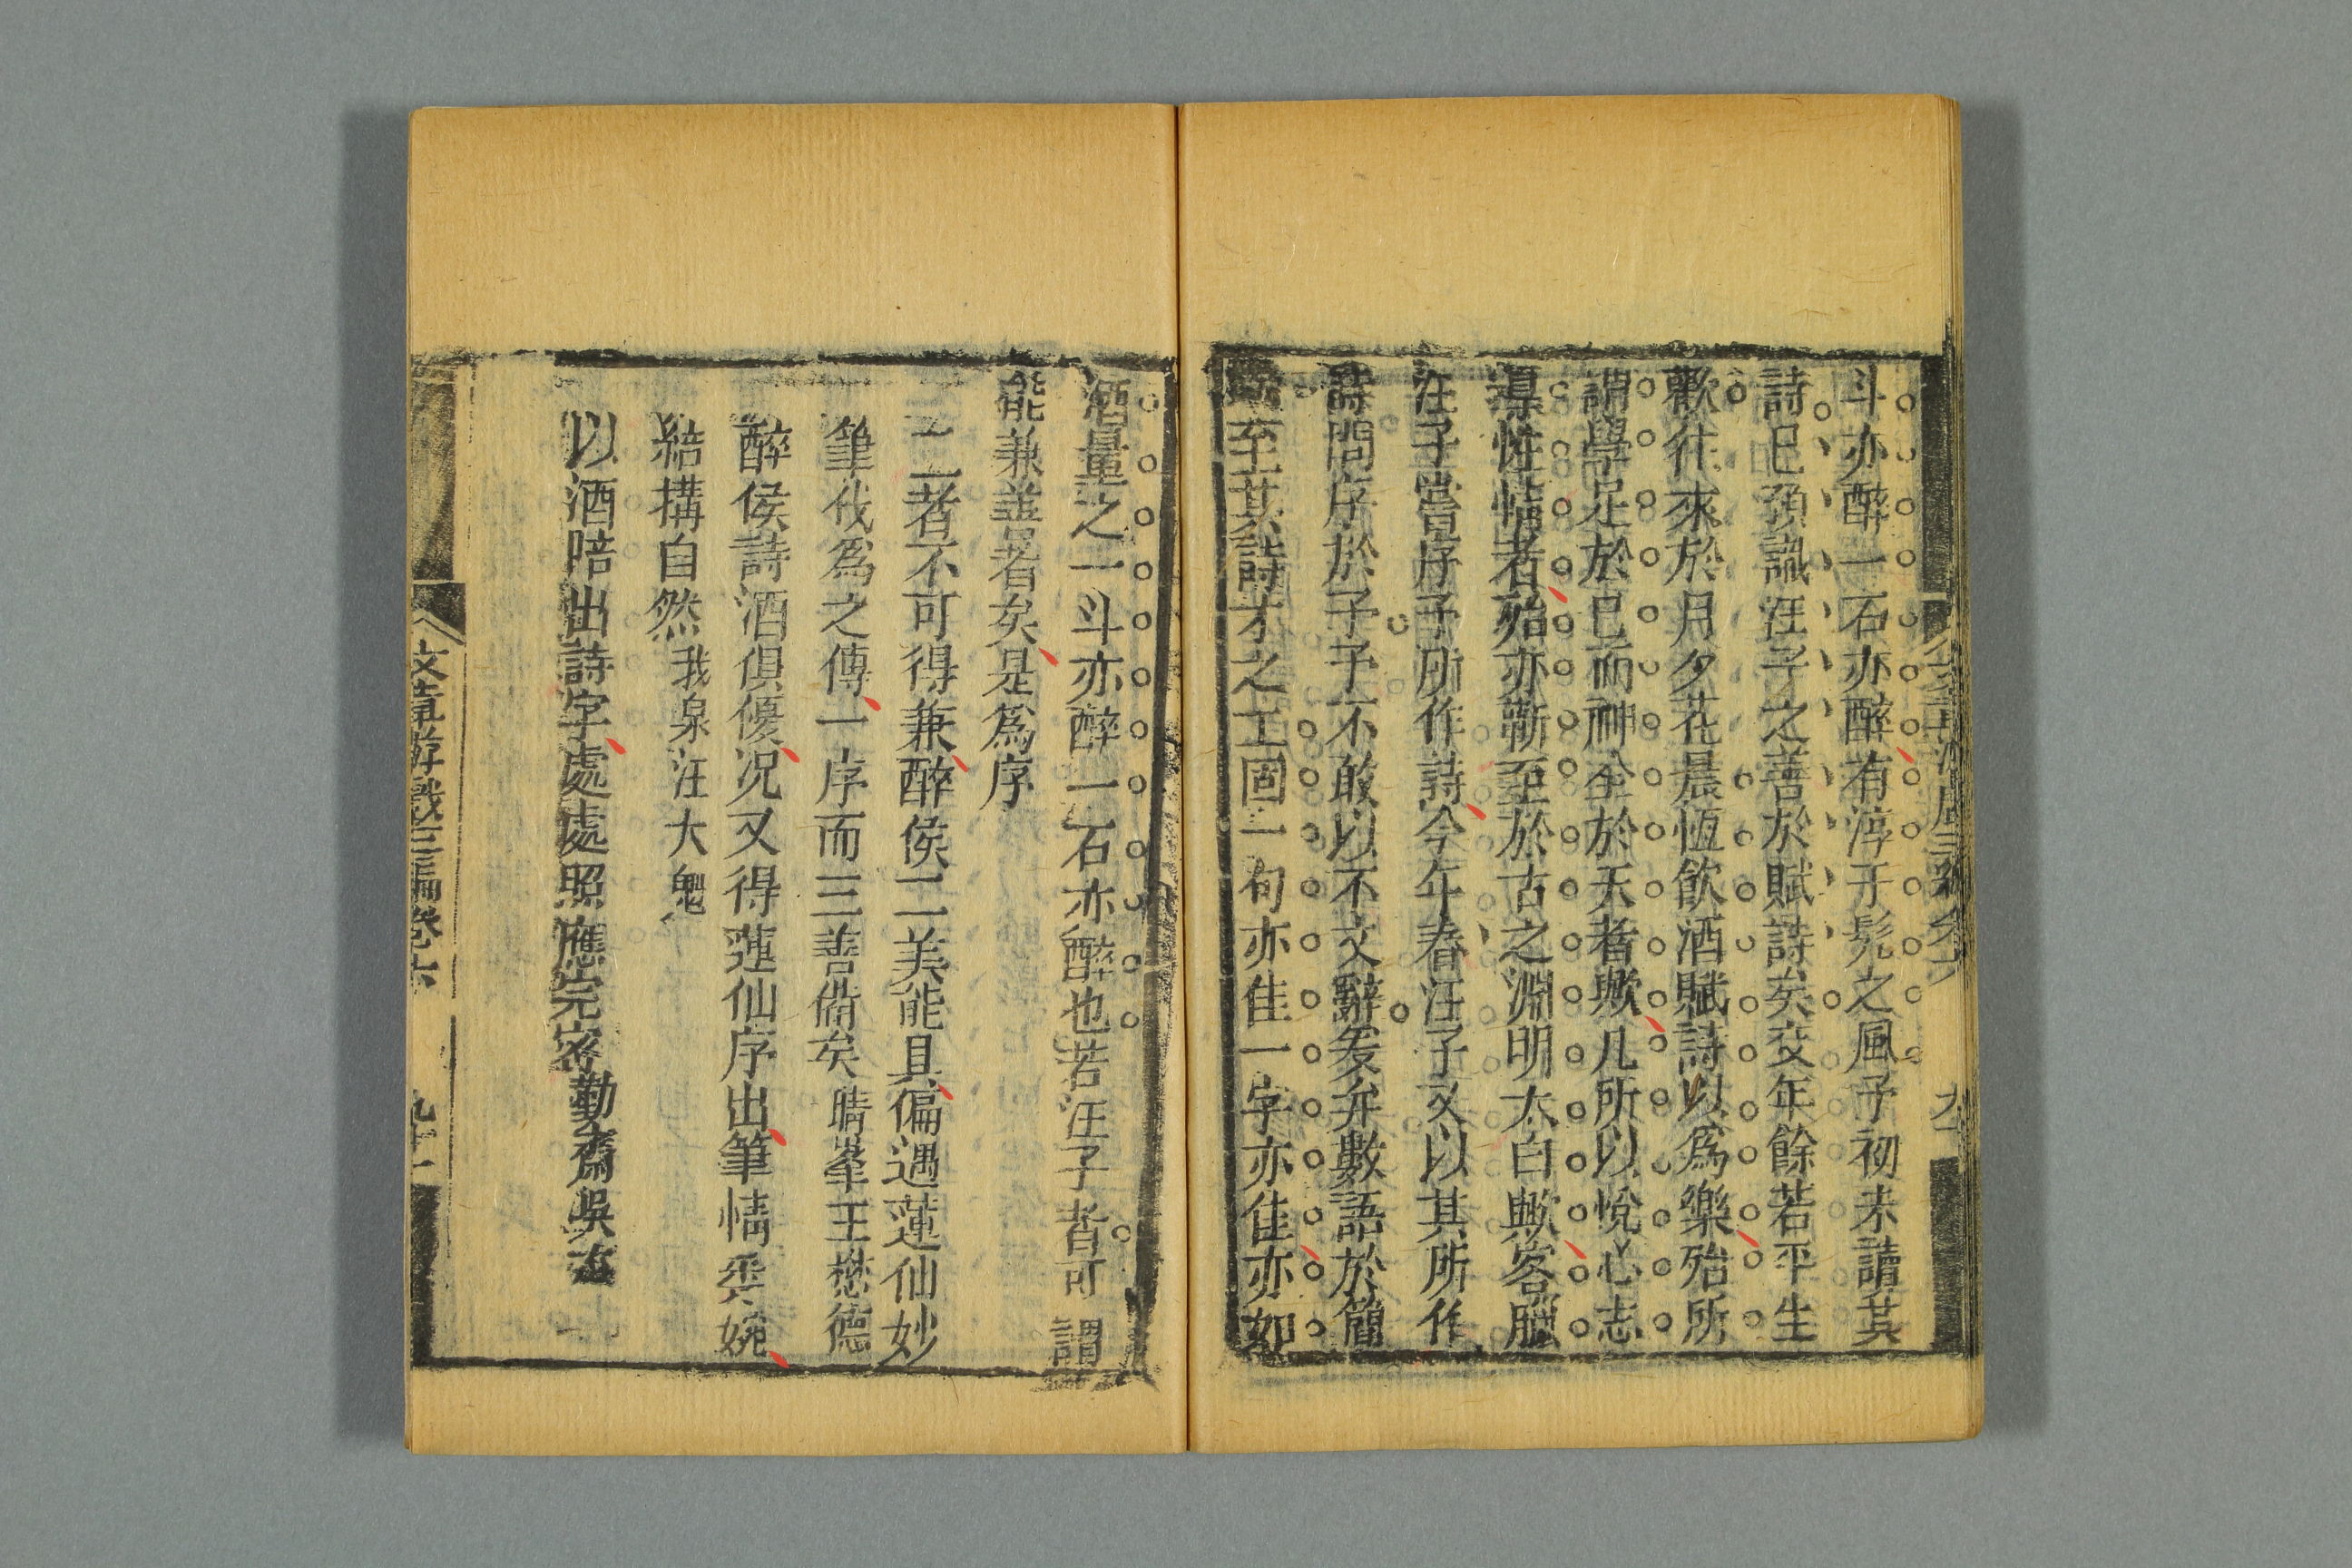 斗亦醉一石亦醉有淳于髡之風予初未讀其
詩已預識汪子之善於賦詩矣交年餘若平生
歡往來於月夕花晨恆飲酒賦詩以爲樂殆所
謂學足於已而神全於天者歟凡所以悅心志
導性情者殆亦蘄至於古之淵明太白歟客臘
汪子嘗序予所作詩今年春汪子又以其所作
詩問序於予予不敢以不文辭爰弁數語於簡
至其詩才之工固一句亦佳一字亦佳亦如
酒量之一斗亦醉一石亦醉也若汪子者可謂
能兼善者矣是爲序
二者不可得兼醉侯二美能具偏遇蓮仙妙
筆代爲之傳一序而三善備矣 晴峯王懋德
醉侯詩酒俱優况又得蓮仙序出筆情秀婉
結構自然 我泉汪大魁
以酒陪出詩字處處照應完密 勤齋吳
文章游戲三編卷六 九十一